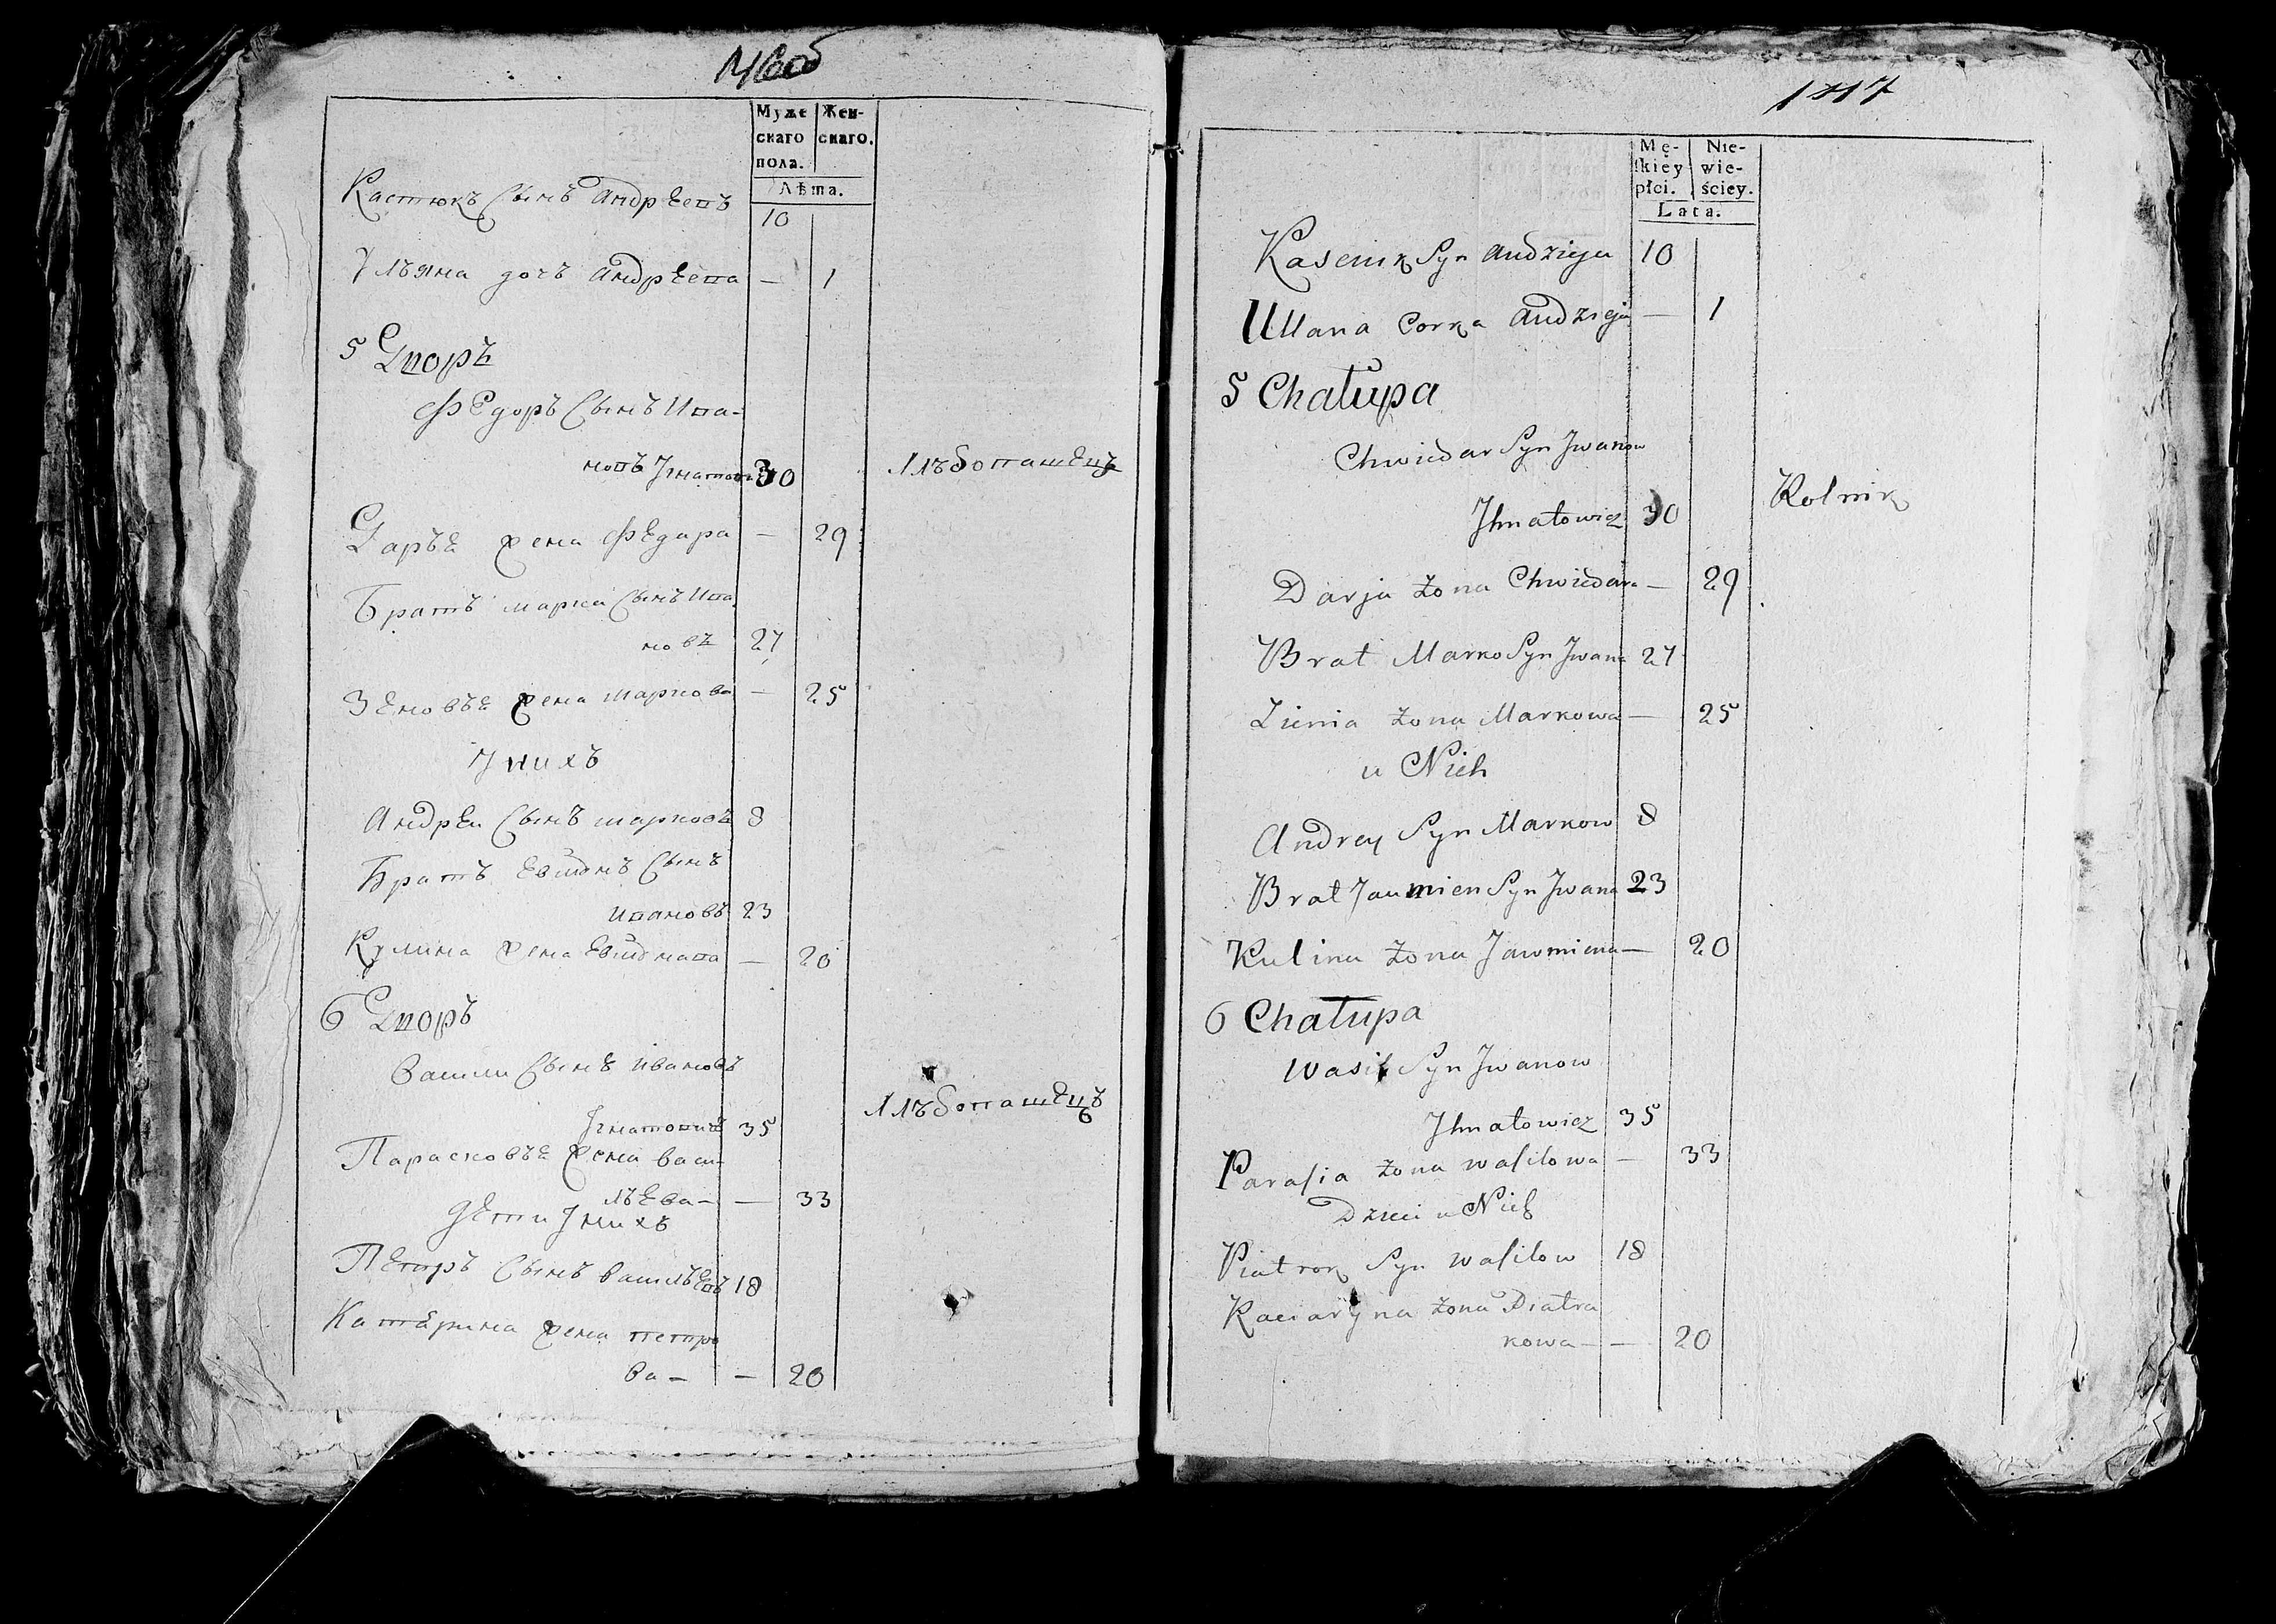 Муже
скаго
пола.
Жен-
скаго.
Лѣта.
Кастюкъ Сынъ Андрѣевъ 10
Ульяна дочъ Андрѣева — 1
5 Дворъ
Федоръ Сынъ Ива-
новъ Игнатович 30 Хлѣбопашецъ
Даръя жена Федара — 29
Братъ марка Сынъ Ива
новъ 27
Зеновъя жена маркова — 25
У нихъ
Андрей Сынъ марковъ 8
Братъ Сынъ
ивановъ 23
Кулина жена — 20
6 Дворъ
Васили Сынъ ивановъ
Игнатовичъ 35 Хлѣбопашецъ
Парасковъя жена васи-
лъева — — 33
дети у нихъ
Петръ Сынъ васильевъ 18
Катерина жена петро
ва — — 20
1117
Mę-
skiey
płci.
Nie-
wie-
ściey.
Lata.
Syn Andzieja 10
Ullana Corka Andzieja — 1
5 Chałupa
Chwiedar Syn Jwanow
Jhnatowicz 30 Rolnik
Darja żona Chwiedara — 29
Brat Marko Syn Jwana 27
Zienia żona Markowa — 25
u Nich
Andrey Syn Markow 8
Brat Jaumien Syn Jwana 23
Kulina żona Jawmiena — 20
6 Chałupa
Wasil Syn Jwanow
Jhnatowicz 35
Parasia żona wasilowa — 33
Dzieci u Nich
Piatrok Syn wasilow 18
Kaciaryna żona Piatra
kowa — — 20